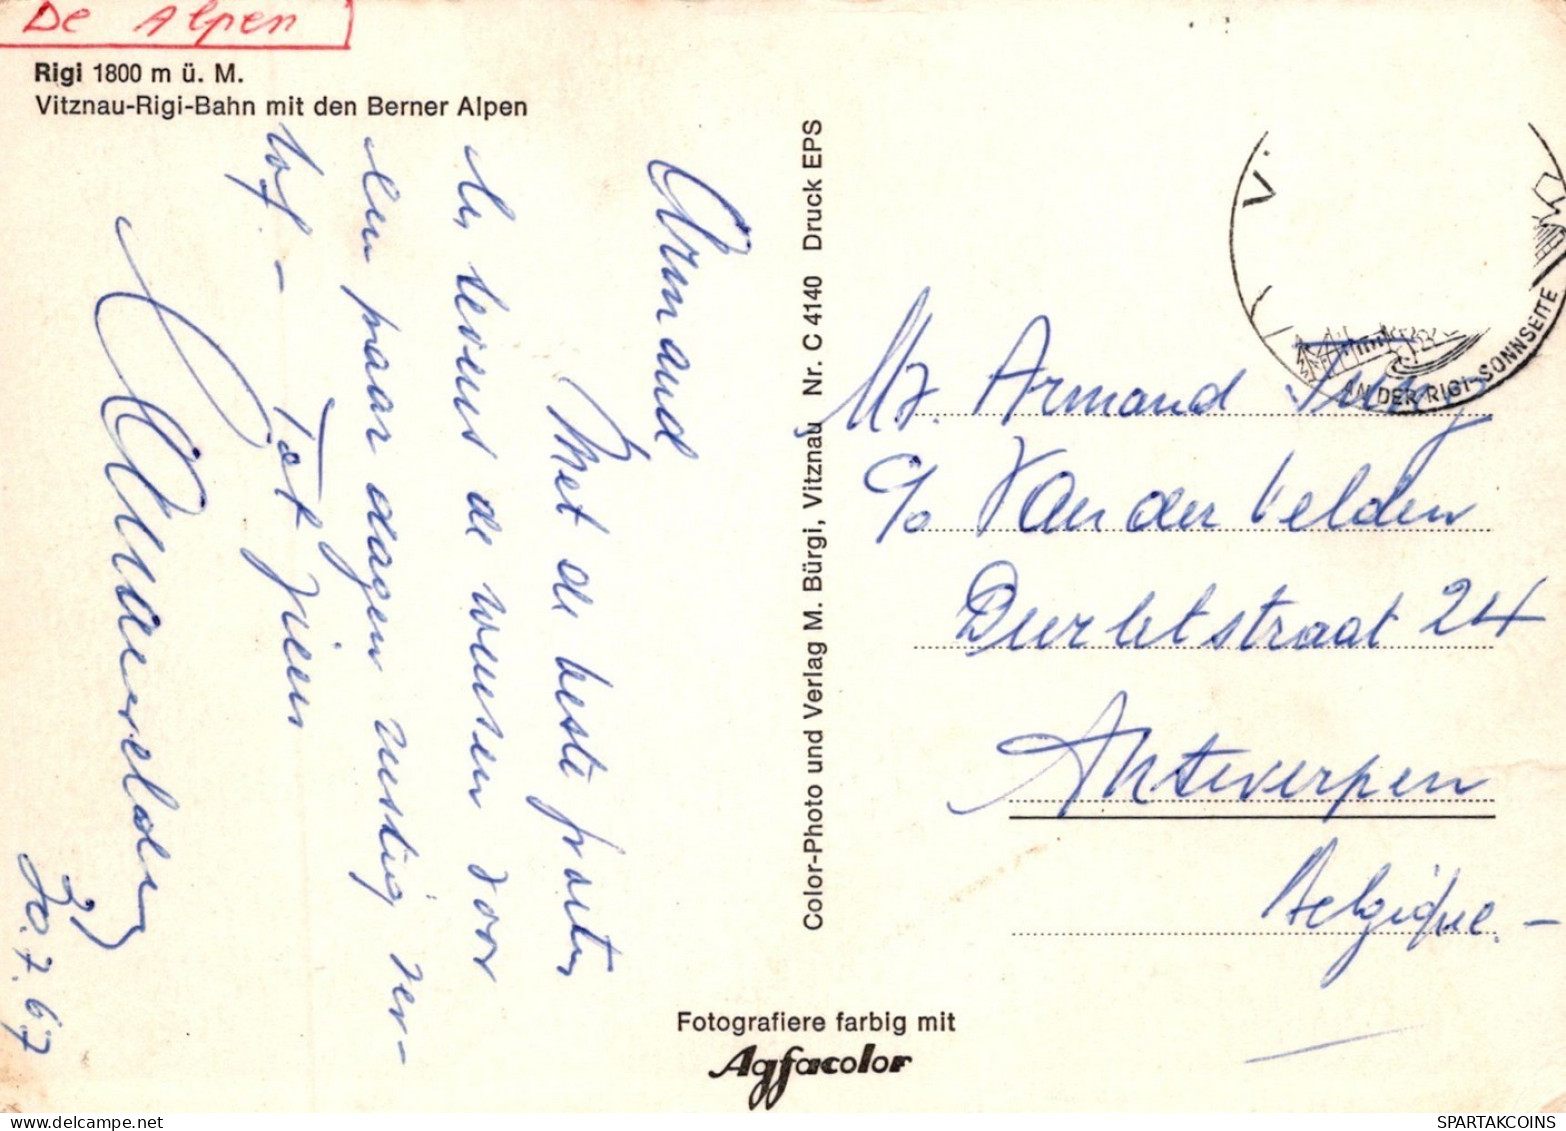 De Alpen
Rigi 1800 m ü. M.
Vitznau-Rigi-Bahn mit den Berner Alpen
Armand
Met de beste groeten
tevens de wensen voor
een paar dagen rustig ver-
lof. -
Tot ziens
30.7.67
Color-Photo und Verlag M. Bürgi, Vitznau Nr. C 4140 Druck EPS
V.
AN DER RIGI-SONNSEITE
Mr. Armand
c/o Van der Velden
Durletstraat 24
Antwerpen
Belgique. -
Fotografiere farbig mit
Agfacolor
SPARTAKCOINS